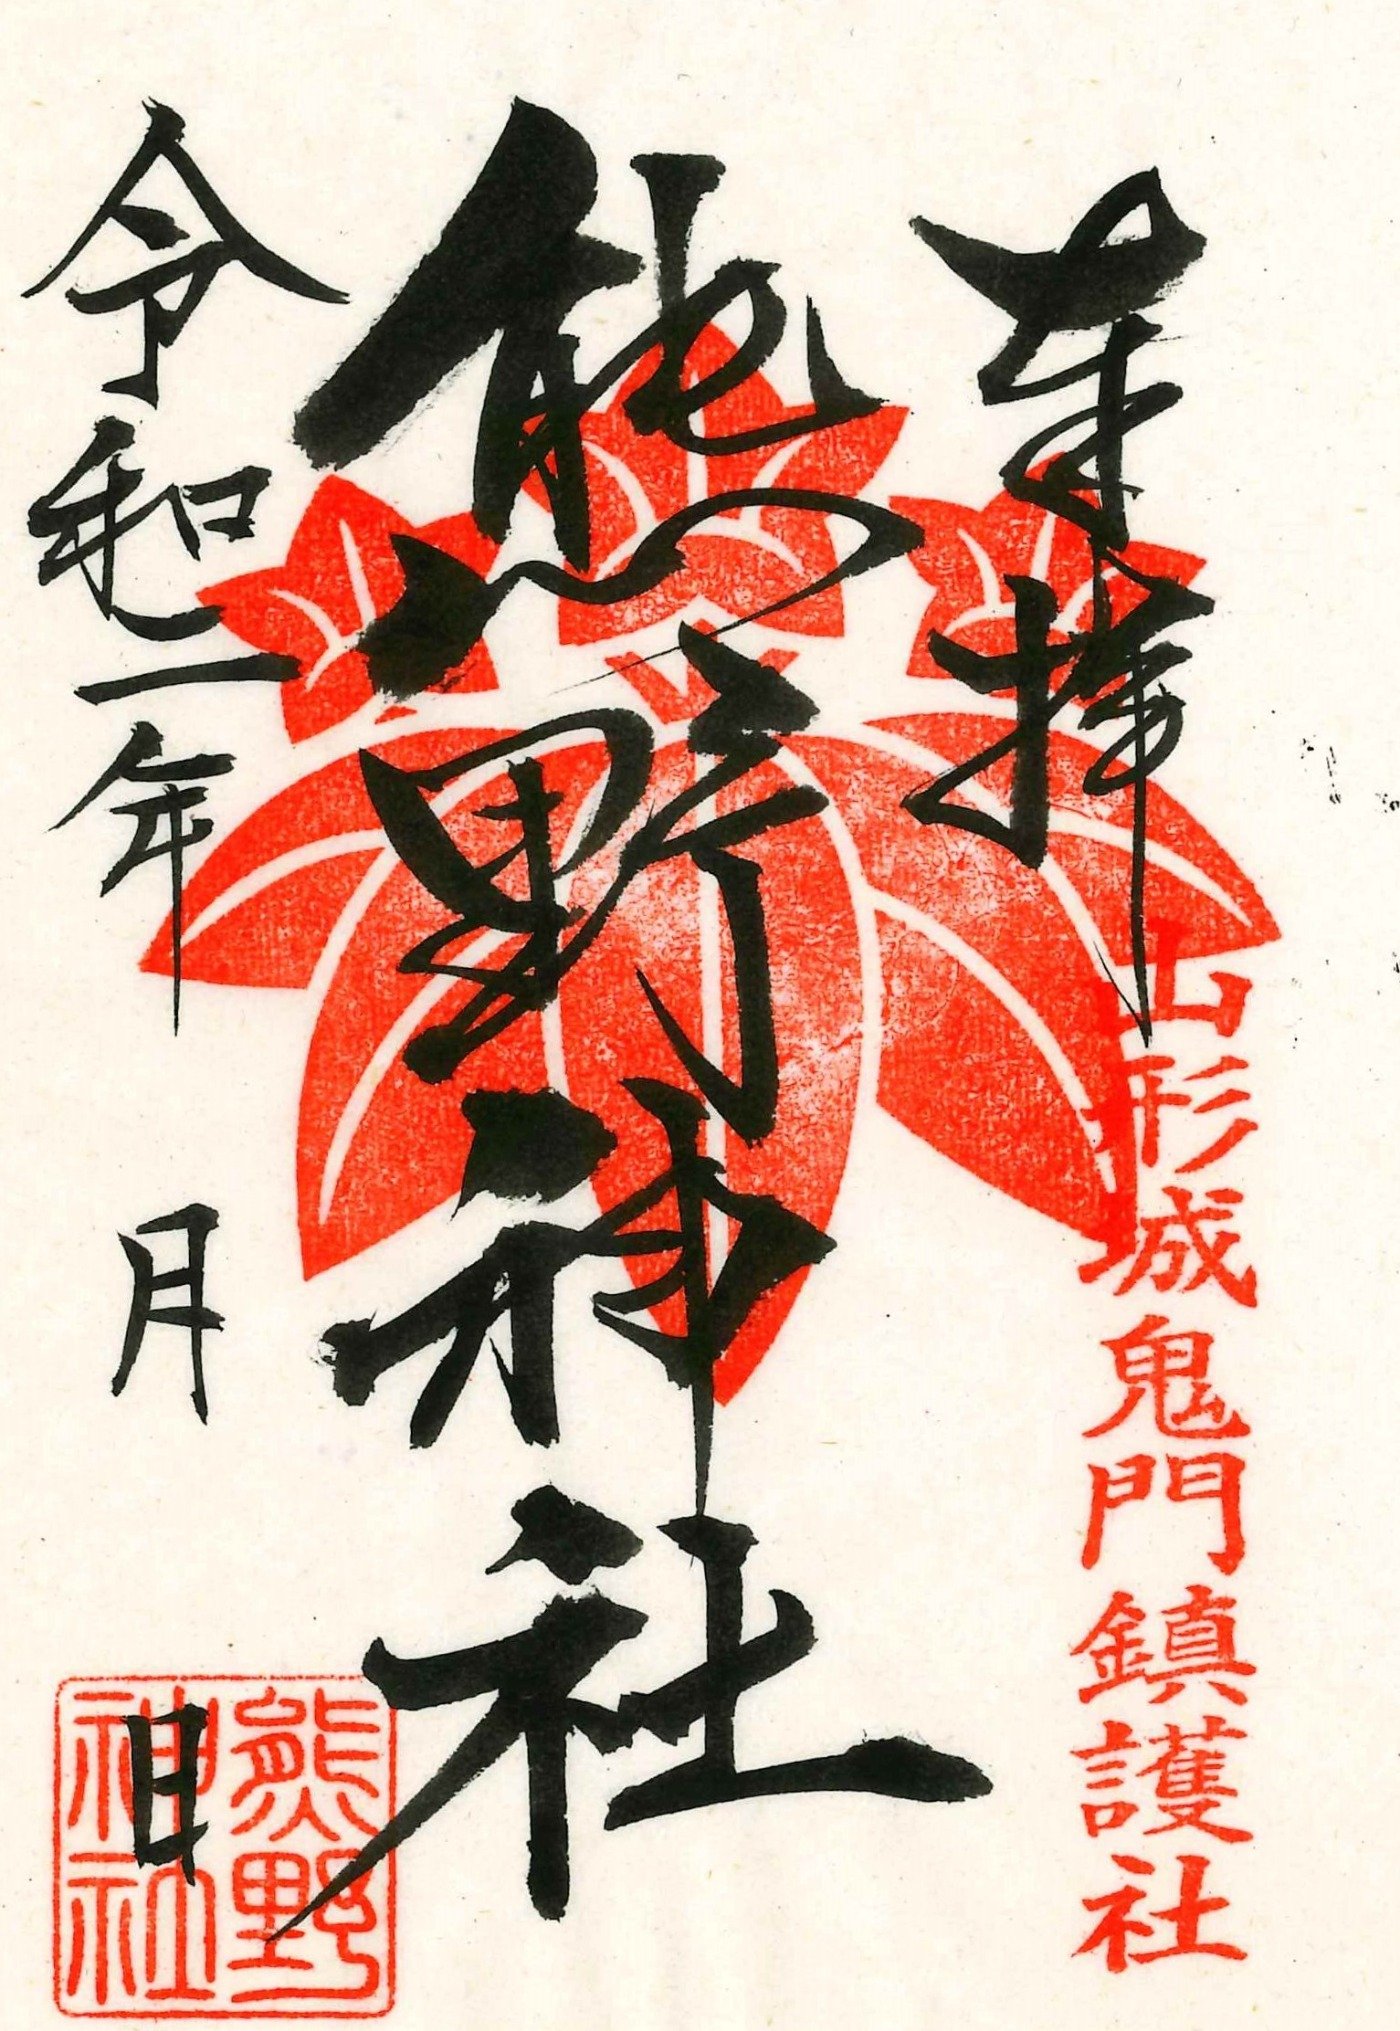 奉拝
山形城鬼門鎮護社
熊野神社
令和二年　月　日
熊野
神社